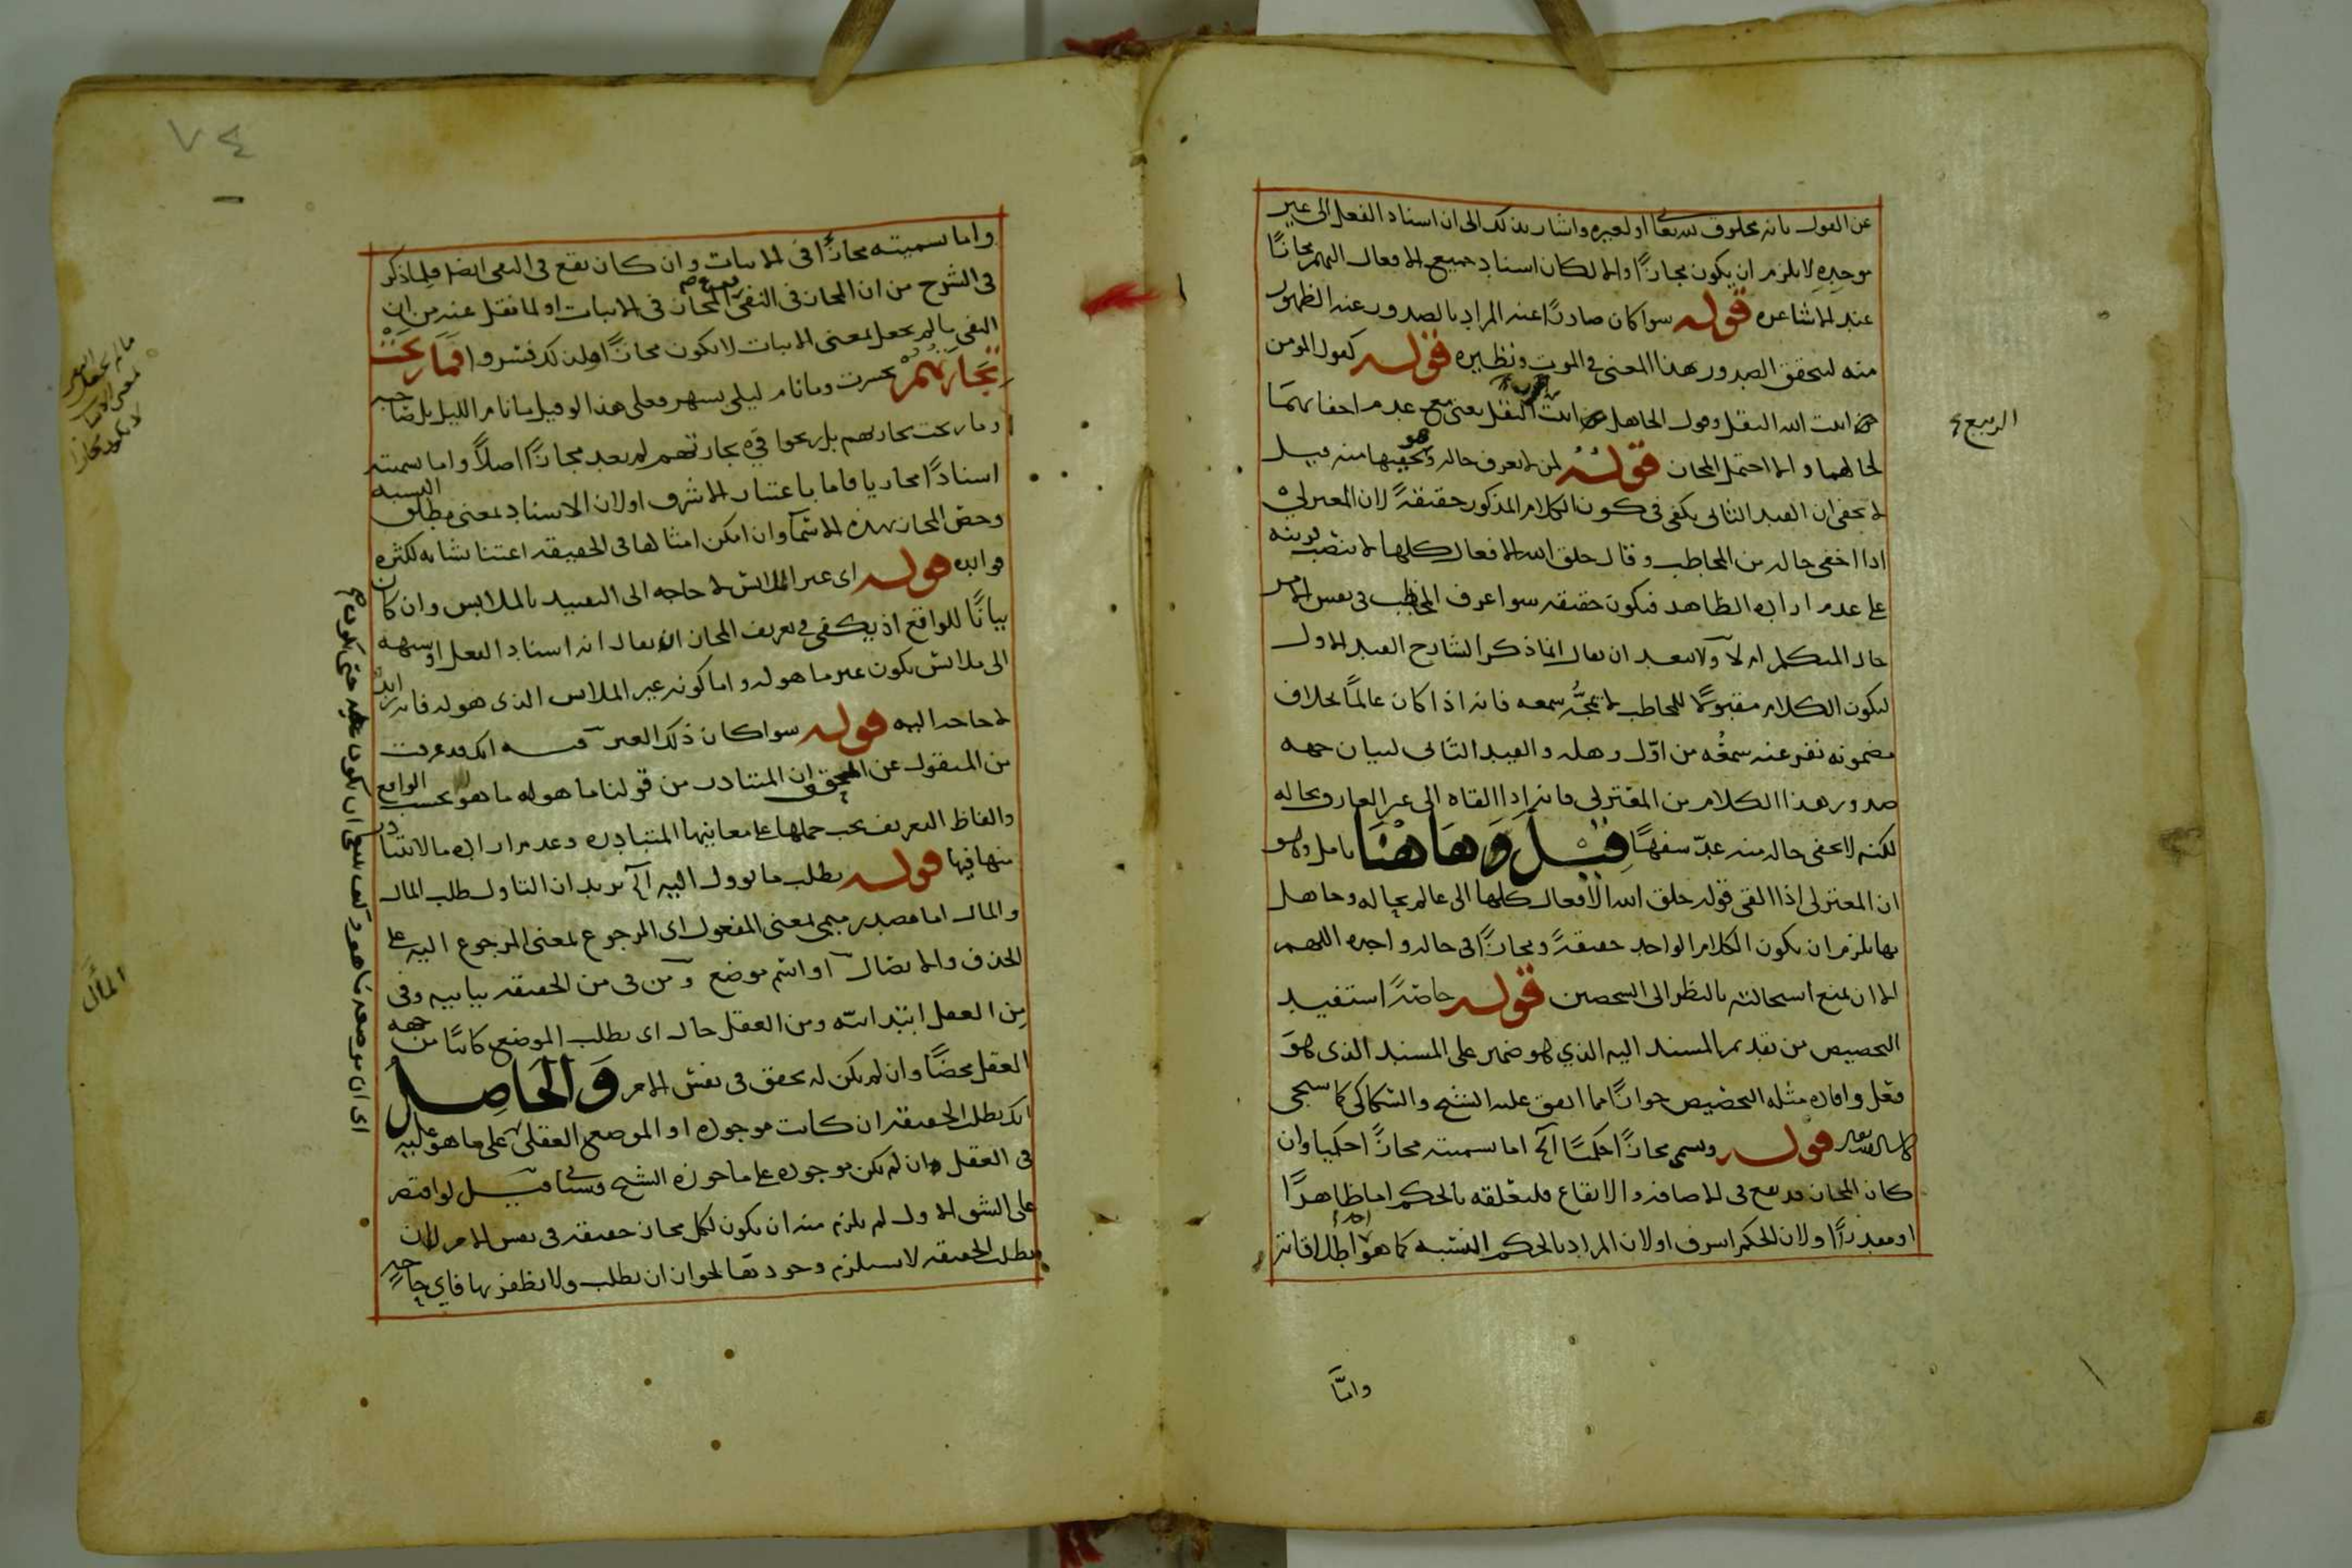 عن القول بانه مخلوق لله تعا او لغيره واشار بذلك الى ان اسناد الفعل الى غير
موجده لا يلزم ان يكون مجازًا والا لكان اسناد جميع الافعال اليهم مجازًا
عند الاشاعره قوله سوا كان صادرًا عنه المراد بالصدور عنه الظهور
منه ليتحقق الصدور بهذا المعنى في الموت ونظيره قوله كقول المومن
انبت الله البقل وقول الجاهل انبت البقل يعنى مع عدم اخفائهما
لحالهما والا احتمل المجاز قوله لمن لا يعرف حاله وهو يخفيها منه قيل
لا يخفى ان القيد الثانى يكفى فى كون الكلام المذكور حقيقةً لان المعتزلى
اذا اخفى حاله من المخاطب وقال خلق الله الافعال كلها لا ينتصب قرينه
على عدم اراده الظاهر فيكون حقيقه سوا عرف المخاطب فى نفس الامر
حال المتكلم ام لا ولا يبعد ان يقال انما ذكر الشارح القيد الاول
ليكون الكلام مقبولًا للمخاطب لا يمجّه سمعه فانه اذا كان عالمًا بخلاف
مضمونه نفر عنه سمعُه من اوّل وهله والقيد الثانى لبيان جهه
صدور هذا الكلام من المعتزلى فانه اذا القاه الى غير العارف بحاله
لكنه لا يخفى حاله منه عدّ سفهًا قيل وهاهنا تامل وهو
ان المعتزلى اذا القى قوله خلق الله الافعال كلها الى عالم بحاله وجاهل
بها يلزم ان يكون الكلام الواحد حقيقةً ومجازًا فى حاله واحده اللهم
الا ان يمنع استحالته بالنظر الى الشخصين قوله خاصّةً استفيد
التخصيص من تقديم المسند اليه الذي هو ضمير على المسند الذى هو
فعل وافاده مثله التخصيص جوازًا مما اتفق عليه الشيخ والسكاكى كما سيجى
قوله ويسمى مجازًا حكميًا الخ اما تسميته مجازًا حكميا وان
كان المجاز قد يقع فى الاضافه والايقاع فلتعلقه بالحكم اما ظاهرًا
او مقدرًا ولان الحكم اشرف او لان المراد بالحكم النسبه كما هو احد اطلاقاته
وامّا
الربيع
٧٤
واما تسميته مجازًا فى الاثبات وان كان يقع فى النفى ايضا فلما ذكر
فى الشرح من ان المجاز فى النفى فرع المجاز فى الاثبات او لما نقل عنه من ان
النفى ما لم يجعل بمعنى الاثبات لا يكون مجازًا ولذلك فسّروا فما ربحت
تجارتهم بخسرت وما نام ليلى بسهر فعلى هذا لو قيل ما نام الليل بل صاحبه
وما ربحت تجارتهم بل ربحوا فى تجارتهم لم يعد مجازًا اصلًا واما تسميته
اسنادًا مجازيا فاما باعتبار الاشرف او لان الاسناد بمعنى مطلق النسبه
وخصّ المجاز بهذه الاسما وان امكن امثالها فى الحقيقه اعتنا بشانه لكثره
فوايده قوله اى غير الملابس لا حاجه الى التقييد بالملابس وان كان
بيانًا للواقع اذ يكفى فى تعريف المجاز ان يقال انه اسناد الفعل او شبهه
الى ملابس يكون غير ما هو له واما كونه غير الملابس الذى هو له فانه
لا حاجه اليه قوله سوا كان ذلك الغير فيه انك قد عرفت
من المنقول عن المحقق ان المتبادر من قولنا ما هو له ما هو بحسب الواقع
والفاظ التعريف يجب حملها على معانيها المتبادره وعدم اراده ما لا يتبادر
منها فيها قوله يطلب ما يوول اليه الخ يريد ان التاول طلب المال
والمال اما مصدر ميمى بمعنى المفعول اى المرجوع بمعنى المرجوع اليه على
الحذف والايصال او اسم موضع ومن فى من الحقيقه بيانيه وفى
مِن العقل ابتدائيّه ومن العقل حال اى يطلب الموضع كائنًا من جهه
العقل محضًا وان لم يكن له تحقق فى نفس الامر والحاصل
انك تطلب الحقيقه ان كانت موجوده او الموضع العقلى على ما هو عليه
فى العقل ان لم تكن موجوده على ما جوزه الشيخ قيل لو اقتصر
على الشق الاول لم يلزم منه ان يكون لكل مجاز حقيقه فى نفس الامر لان
تطلب الحقيقه لا يستلزم وجودتها لجواز ان يطلب ولا يظفر بها فاي حاجه
المآل